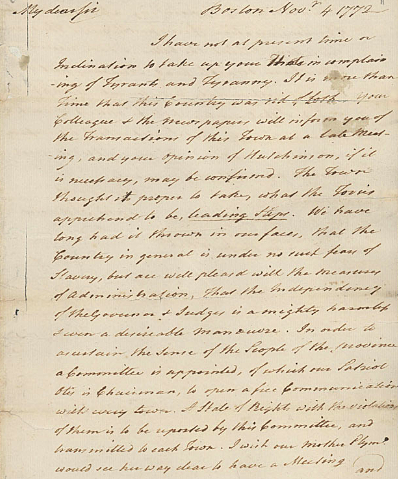 My dear sir Boston Novr 4 1772
I have not at present time or
Inclination to take up your Time in complain
-ing of Tyrants and Tyranny. It is more than
Time that this Country was rid of both. Your
Colleague & the Newspapers will inform you of
the Transactions of this Town at a late Meet-
ing, and your opinion of Hutchinson, if it
is necessary, may be confirmed. The Town
thought it proper to take, what the Tories
apprehend to be, leading Steps. We have
long had it thrown in our faces, that the
Country in general is under no such fears of
Slavery, but are well pleased with the measures
of Administration, That the Independency
of the Governor & Judges is a mighty harmless
& even a desireable Maneuvre. In order to
ascertain the Sense of the People of the province
a Committee is appointed, of which our Patriot
Otis is Chairman, to open a free Communication
with every Town. A State of Right with the violation
of them is to be reported by this Committee, and
transmitted to each Town. I wish our Mother Plymo
would see her way clear to have a Meeting
and